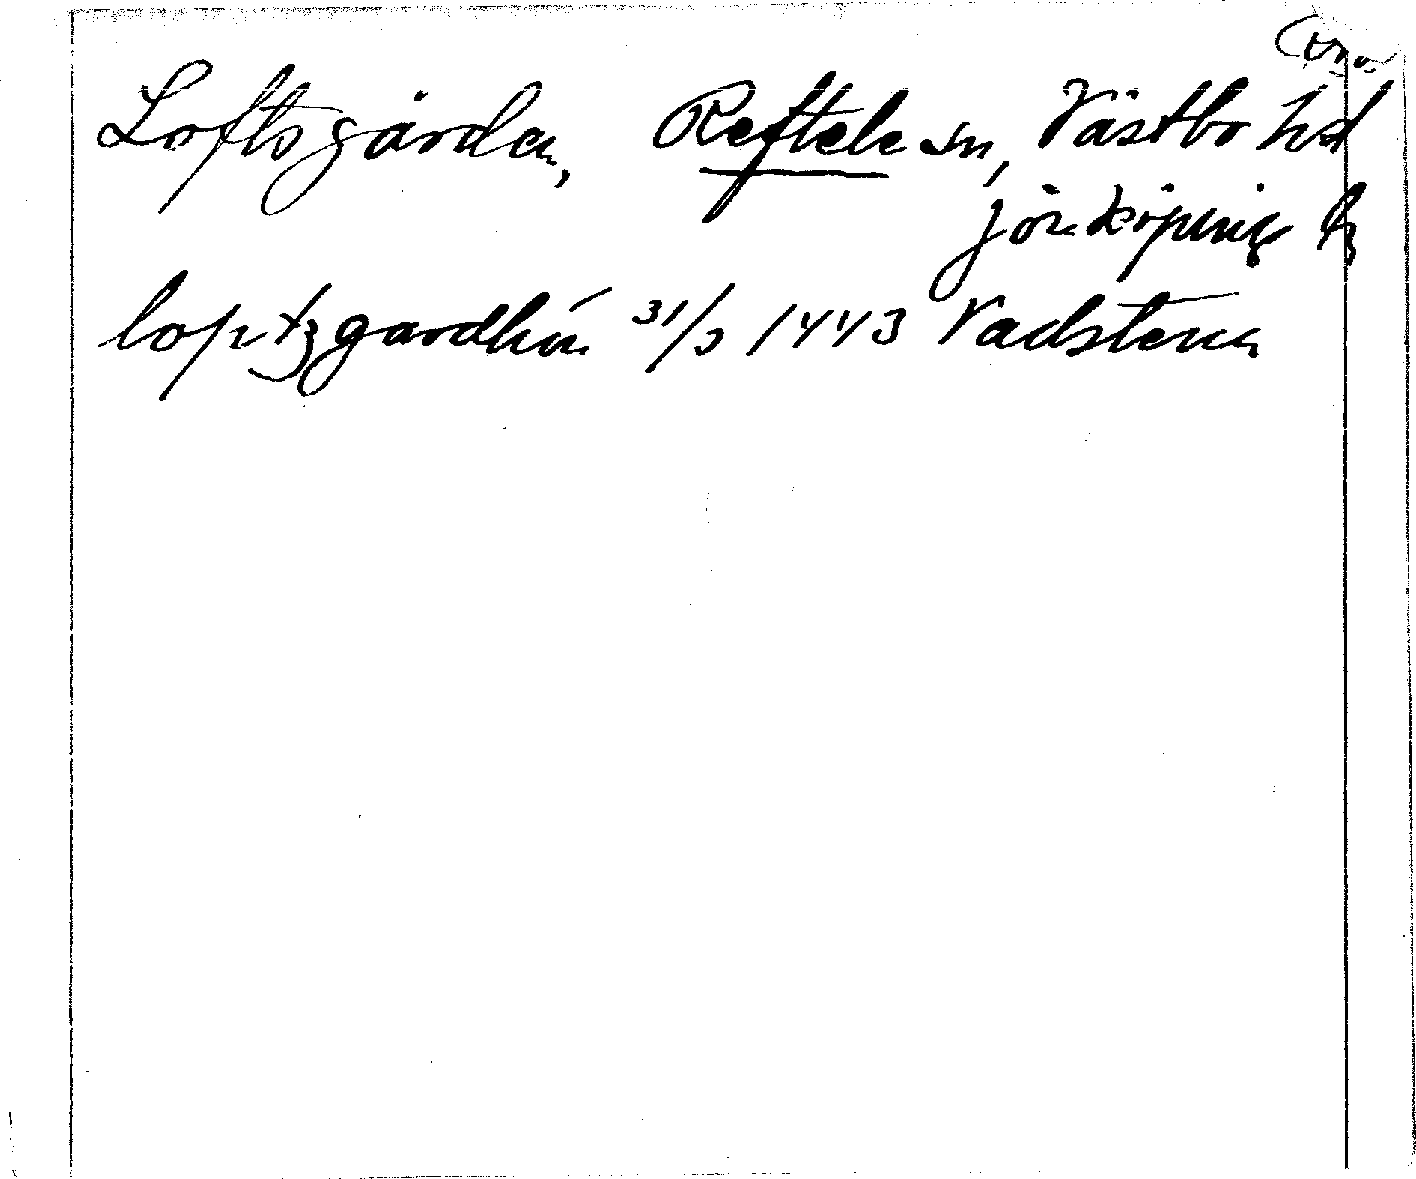 Loftsgården, Reftele sn, Västbo hd
Jönköpings l
loptzgardhin 31/3 1443 Vadstena